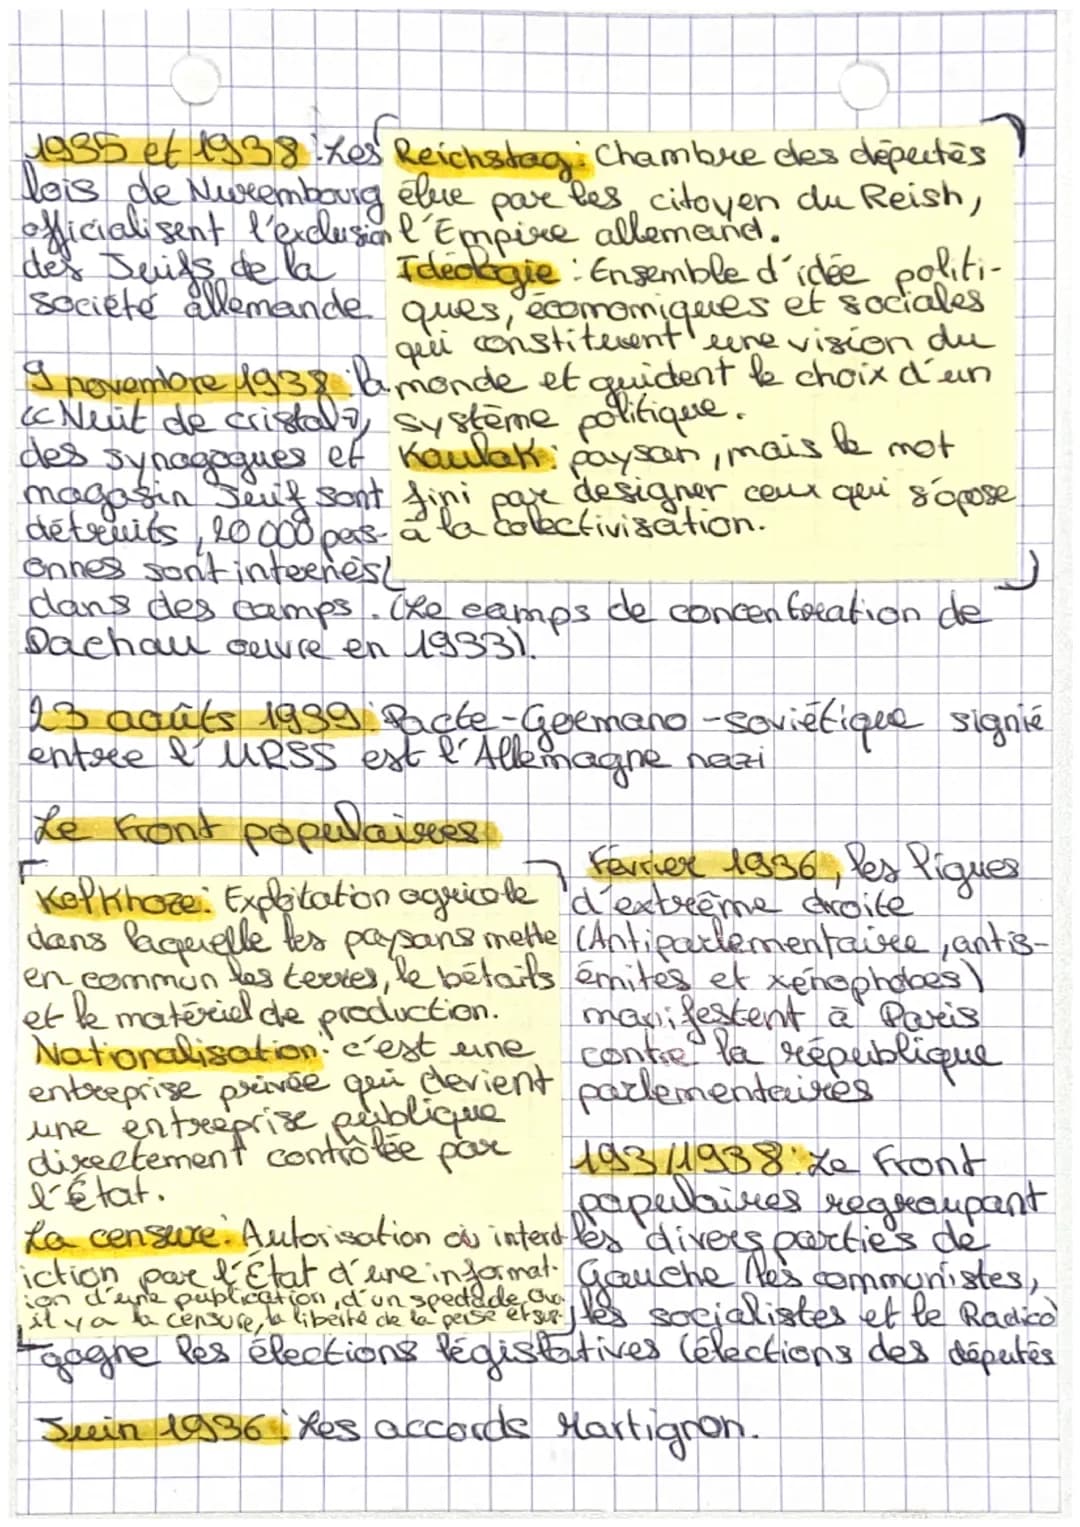 1935 et 1938 : Les
lois de Nurembourg
officialisent l'exclusion
des Juifs de la
société allemande
Reichstag : Chambre des députés
élue par les citoyen du Reish,
l'Empire allemand.
Idéologie : Ensemble d'idée politi-
ques, économiques et sociales
qui constituent une vision du
monde et guident le choix d'un
système politique.
Koulak : paysan, mais le mot
fini par designer ceux qui s'opose
à la colectivisation.
9 novembre 1938 : la
« Nuit de cristal »,
des synagogues et
magasin Juif sont
détruits, 20 000 pers-
onnes sont internés
dans des camps. (Le camps de concentration de
Dachau oeuvre en 1933).
23 août 1939 : Pacte-Germano-soviétique signié
entre l'URSS est l'Allemagne nazi
Le Front populaires
Kolkhoze : Exploitation agricole
dans laquelle les paysans mette
en commun les terres, le bétails
et le matériel de production.
Nationalisation : c'est une
entreprise privée qui devient
une entreprise publique
directement contrôlée par
l'État.
La censure : Autorisation où interd-
iction par l'État d'une informat-
ion d'une publication, d'un spectacle,
il y a la censure, la liberté de la
Février 1936, les ligues
d'extrême droite
(Antiparlementaire, antis-
émites et xénophobes)
manifestent à Paris
contre la république
parlementaires
193/1938 : Le Front
populaires regroupant
les divers parties de
Gauche les communistes,
les socialistes et le Radica
gagne les élections législatives (élections des députés
Juin 1936 : Les accords Martignon.